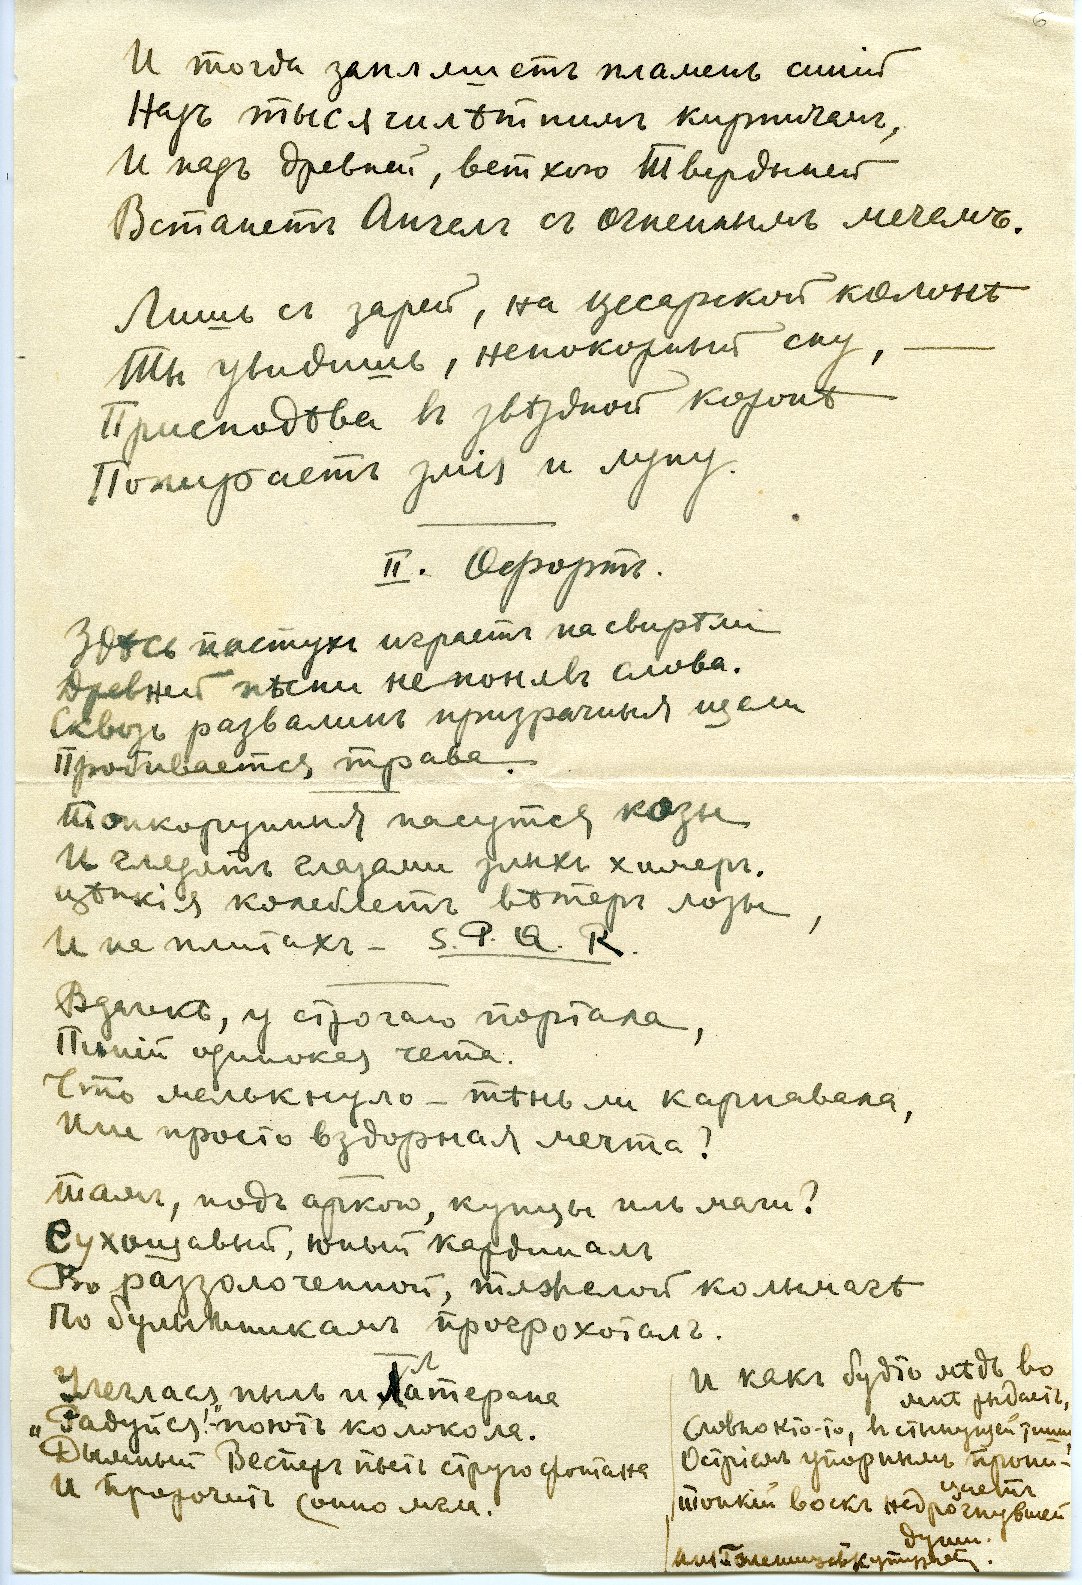 6
И тогда запляшетъ пламень синій
Надъ тысячилѣтнимъ кирпичамъ,
И надъ древней, ветхою Твердыней
Встанетъ Ангелъ съ огненнымъ мечемъ.
Лишь съ зарей, на цесарской колонѣ
Ты увидишь, непокорный сну, —
Приснодѣва въ звѣздной коронѣ
Попираетъ змія и луну.
II. Офортъ.
Здѣсь пастухъ играетъ на свирѣли
Древней пѣсни не понявъ слова.
Сквозь развалинъ призрачныя щели
Пробивается трава.
Тонкорунныя пасутся козы
И глядятъ глазами злыхъ химеръ.
Цѣпкія колеблетъ вѣтеръ лозы,
И на плитахъ – S. P. Q. R.
Вдалекѣ, у строгаго портала,
Пиній одинокая чета.
Что мелькнуло – тѣнь ли карнавала,
Или просто вздорная мечта?
Тамъ, подъ аркою, купцы иль маги?
Сухощавый, юный кардиналъ
Во раззолоченной, тяжелой колымагѣ
По булыжникамъ прогрохоталъ.
Улеглась пыль и Латерана
„Радуйся!" поютъ колокола.
Дымный Весперъ пьетъ струю фонтана
И пророчитъ сонно мгла.
И какъ будто мѣдь во
мнѣ рыдаетъ,
Словно кто-то, въ стынущей тиши,
Остріемъ упорнымъ прони-
цаетъ
Тонкій воскъ недрогнувшей
души.